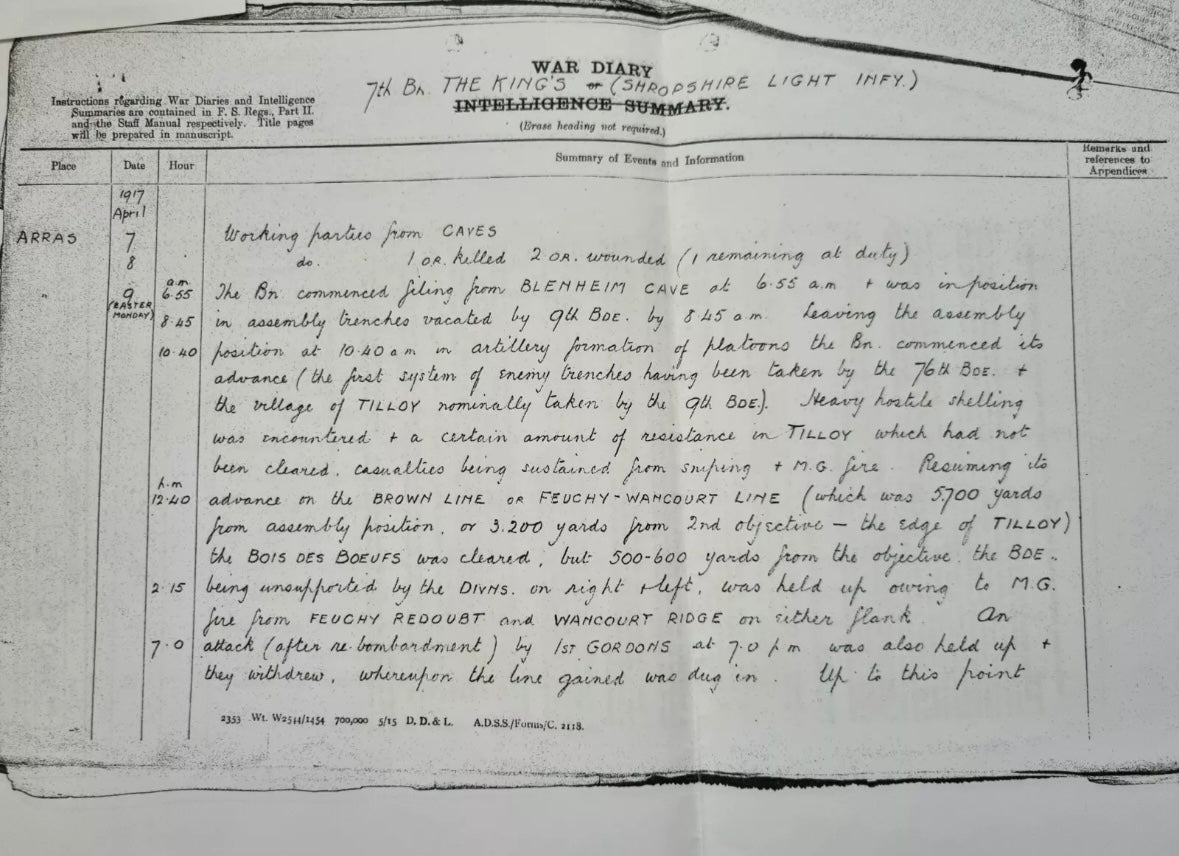 WAR DIARY
7th Bn. THE KING'S or (SHROPSHIRE LIGHT INFY.)
INTELLIGENCE SUMMARY.
(Erase heading not required.)
Instructions regarding War Diaries and Intelligence
Summaries are contained in F. S. Regs., Part II.
and the Staff Manual respectively. Title pages
will be prepared in manuscript.
Place Date Hour Summary of Events and Information Remarks and references to Appendices
1917
April
ARRAS 7 Working parties from CAVES
8 do. 1 OR. killed 2 OR. wounded (1 remaining at duty)
" 9 (EASTER MONDAY) a.m 6.55 The Bn. commenced filing from BLENHEIM CAVE at 6.55 a.m + was in position
8.45 in assembly trenches vacated by 9th BDE. by 8.45 a.m. Leaving the assembly
10.40 position at 10.40 a.m in artillery formation of platoons the Bn. commenced its
advance (the first system of enemy trenches having been taken by the 76th BDE. +
the village of TILLOY nominally taken by the 9th BDE.). Heavy hostile shelling
was encountered + a certain amount of resistance in TILLOY which had not
been cleared, casualties being sustained from sniping + M.G. fire. Resuming its
p.m 12.40 advance on the BROWN LINE or FEUCHY-WANCOURT LINE (which was 5.700 yards
from assembly position, or 3.200 yards from 2nd objective — the edge of TILLOY)
the BOIS DES BOEUFS was cleared, but 500-600 yards from the objective the BDE.
2.15 being unsupported by the DIVNS. on right + left, was held up owing to M.G.
fire from FEUCHY REDOUBT and WANCOURT RIDGE on either flank. An
7.0 attack (after re-bombardment) by 1ST GORDONS at 7.0 p m was also held up +
they withdrew, whereupon the line gained was dug in. Up to this point
2353 Wt. W2544/1454 700,000 5/15 D. D. & L. A.D.S.S./Forms/C. 2118.